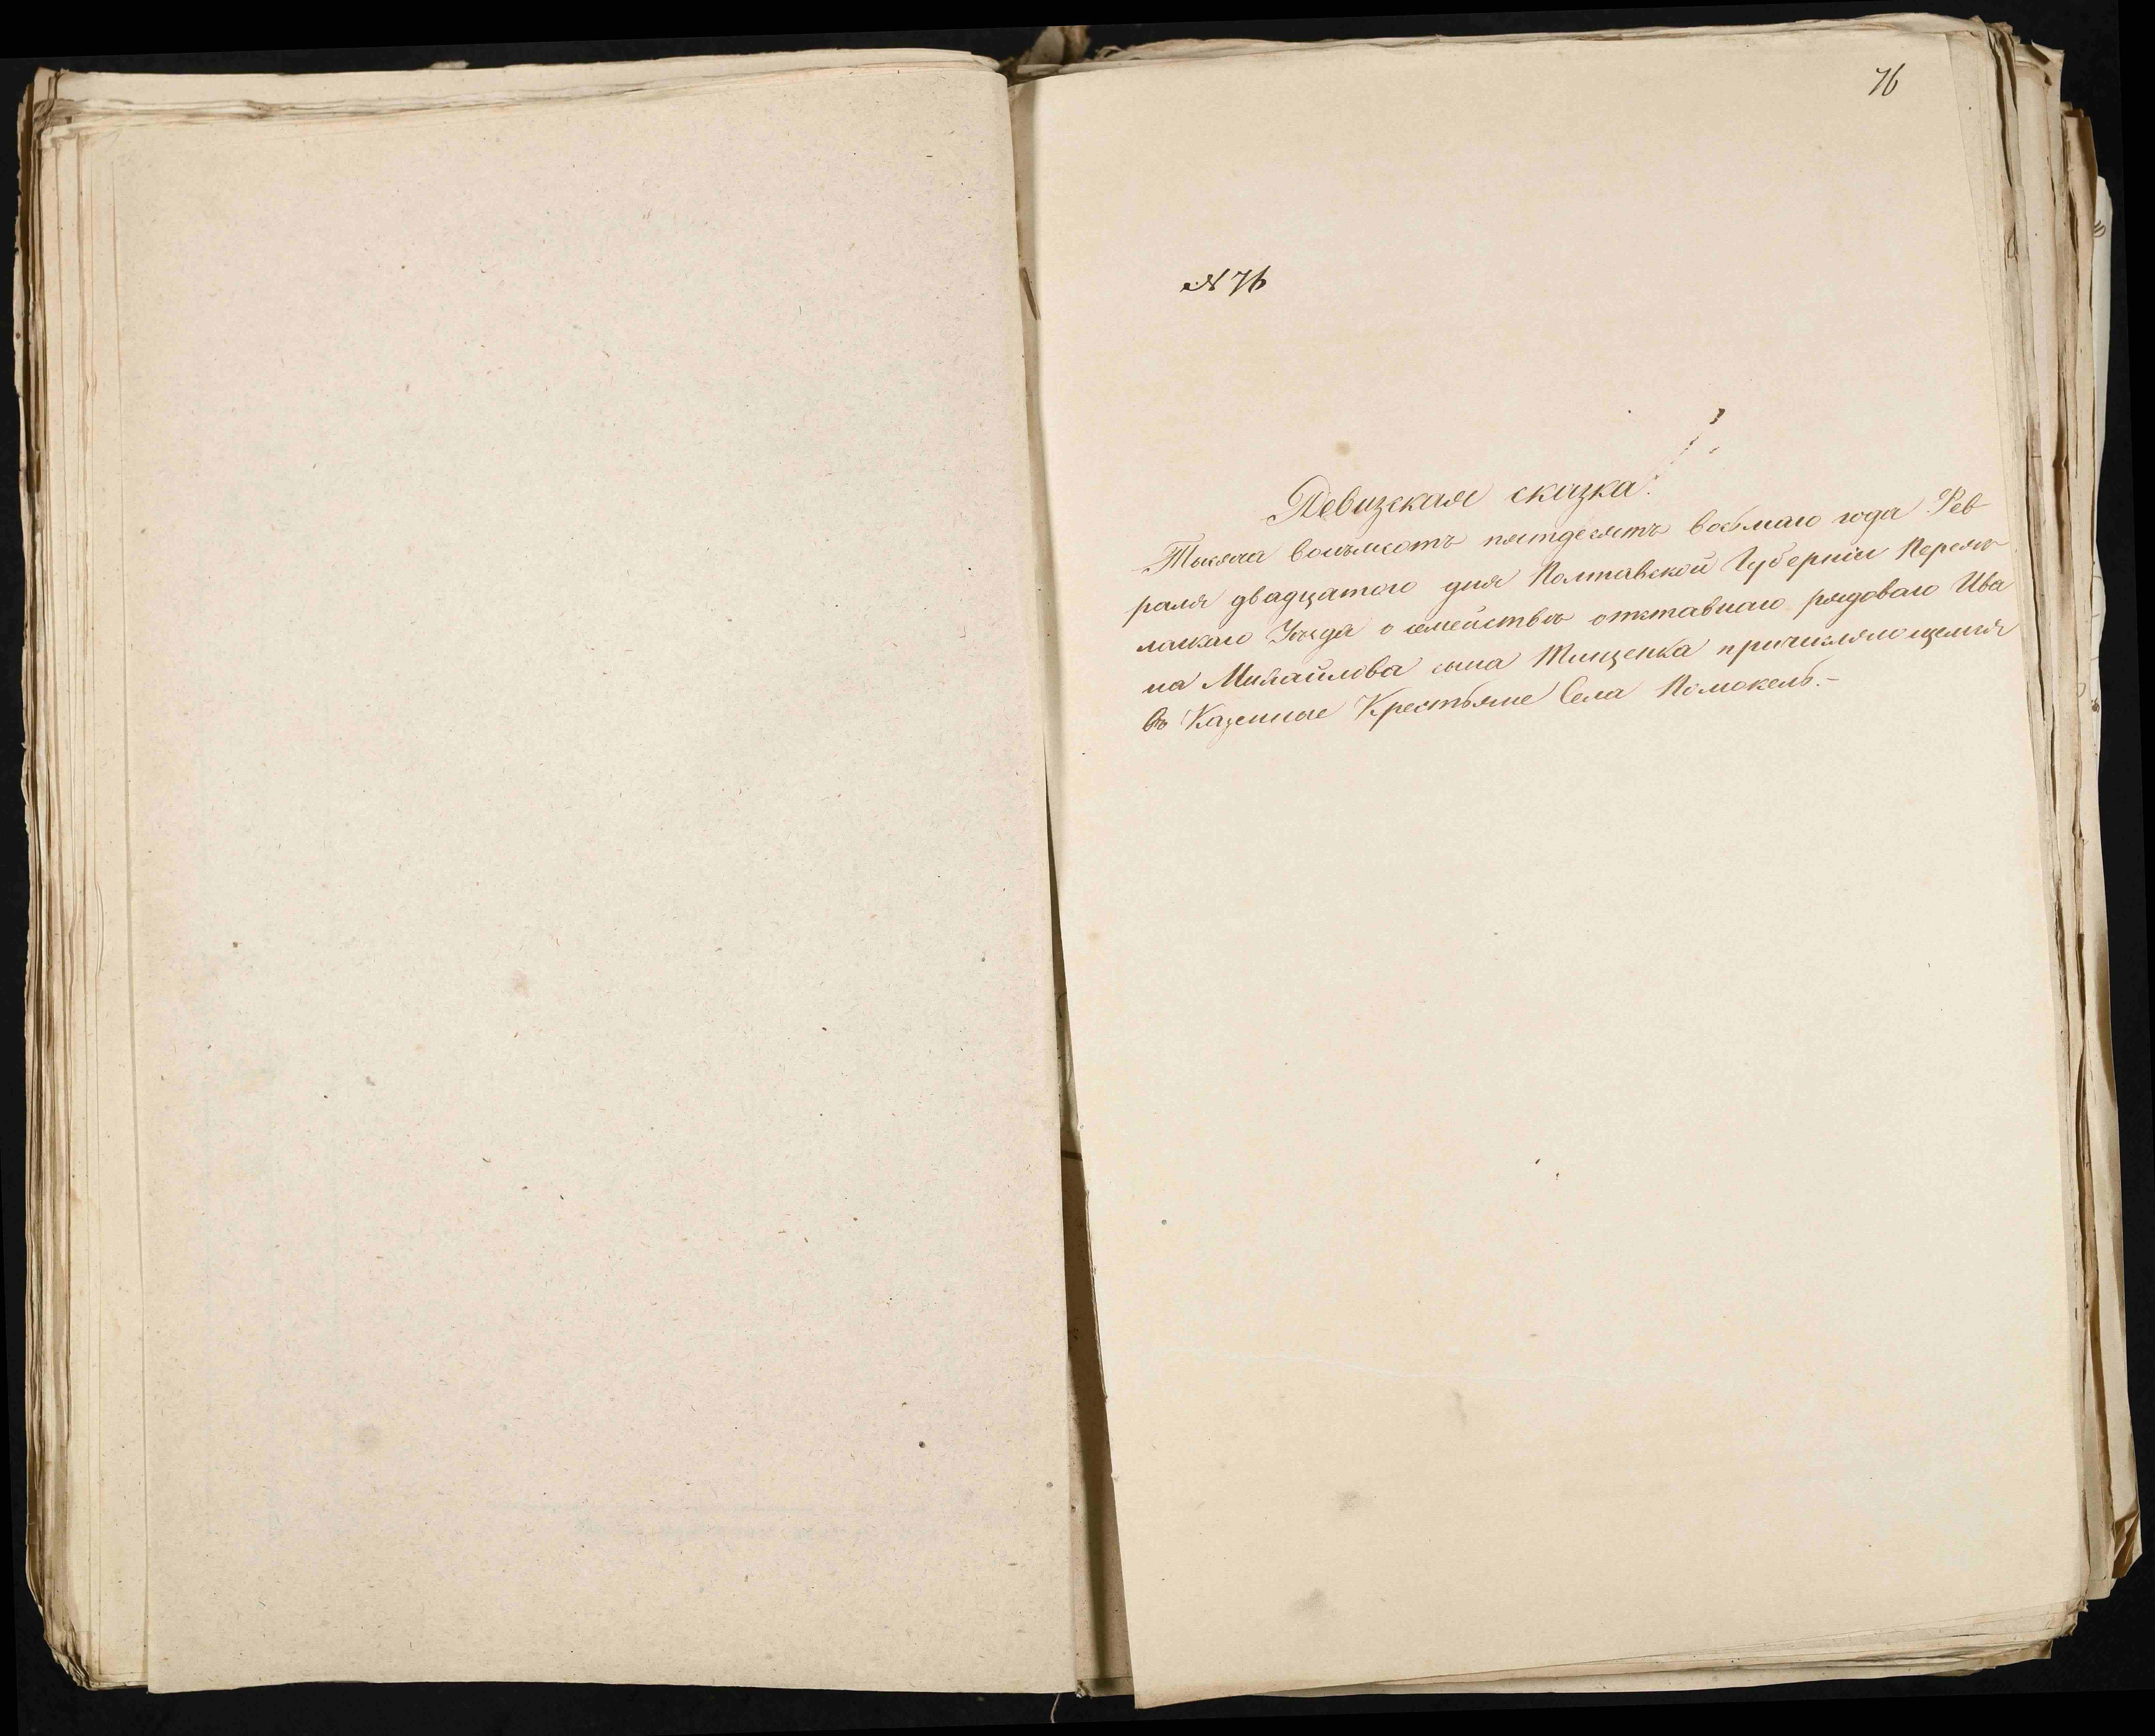 76
№ 76
Ревизская сказка.
Тысяча восемьсотъ пятдесятъ восьмаго года Фев
раля двадцатого дня Полтавской Губерніи Переяс
лавскаго Уѣзда о семействѣ отставнаго рядоваго Ива
на Михайлова сына Тищенка причисляющемся
въ Казенные Крестьяне Села Помоклей.-